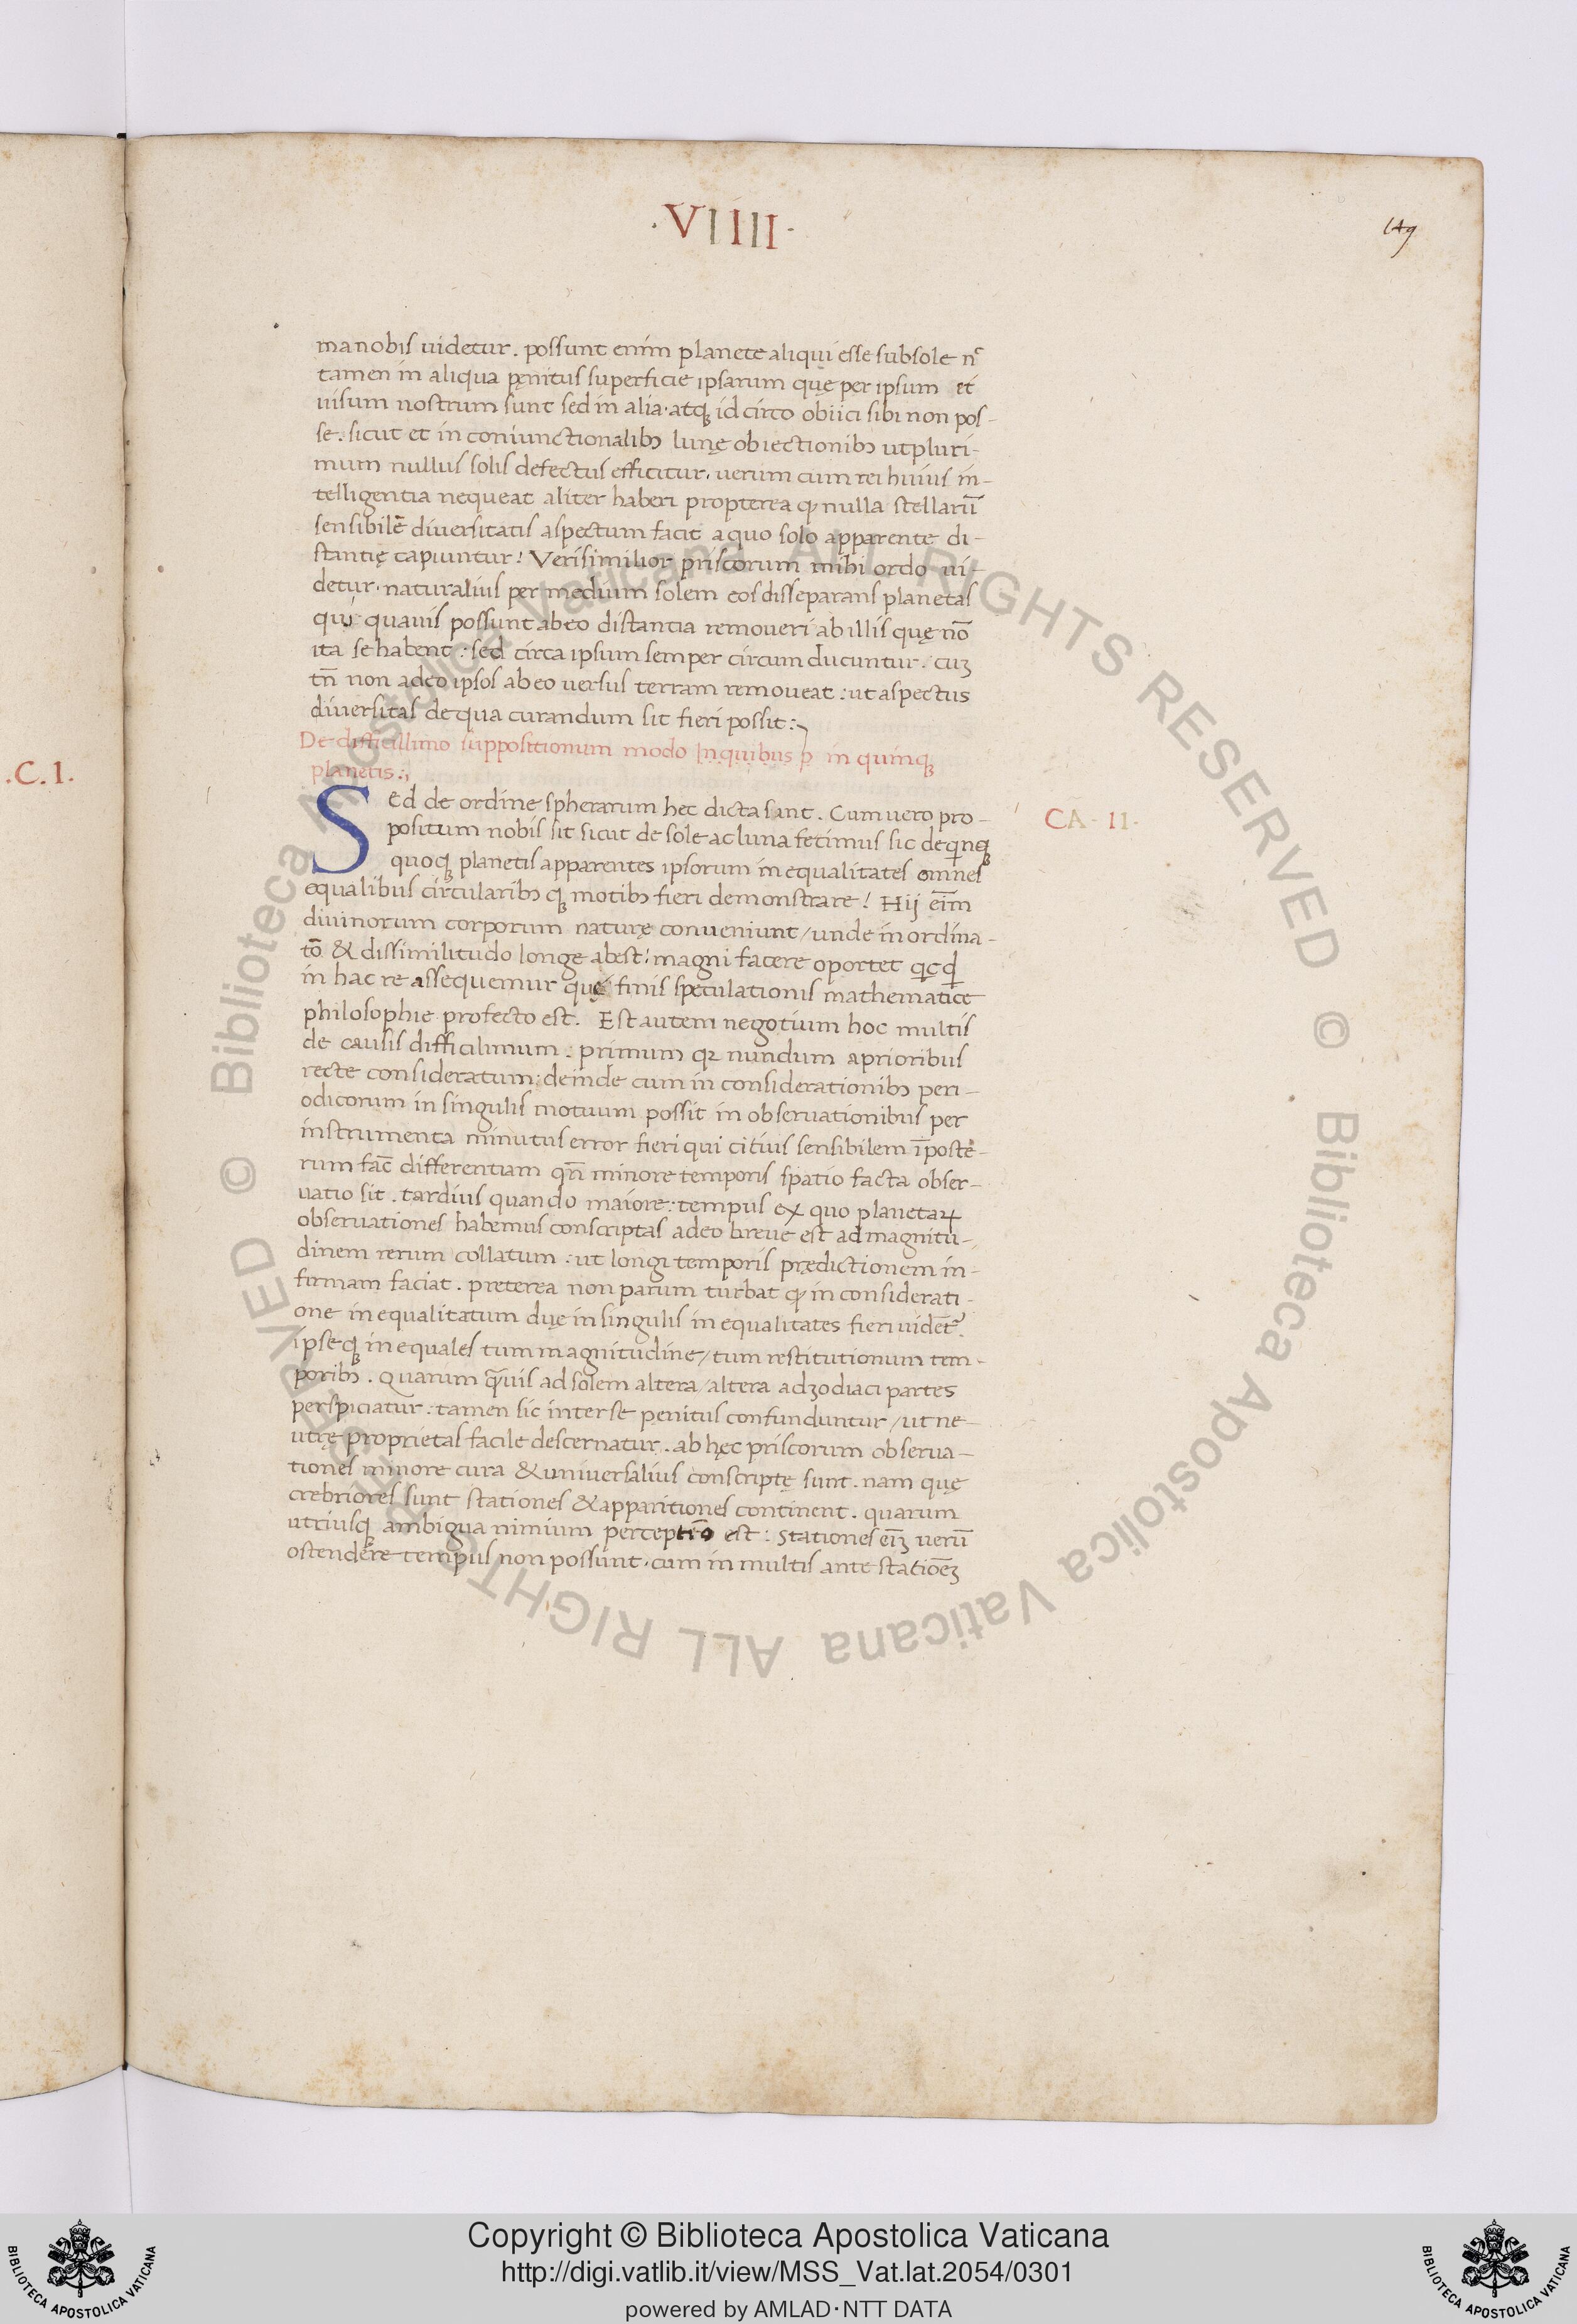 ·VIIII·
149
ma nobis uidetur. possunt enim planete aliqui esse sub sole nͨ
tamen in aliqua pęnitus superficie ipsarum quę per ipsum et
uisum nostrum sunt sed in alia. atqꝫ id circo obiici sibi non pos-
se. sicut et in coniunctionalibꝰ lunę obiectionibꝰ ut pluri-
mum nullus solis defectus efficitur. uerum cum rei huius in-
telligentia nequeat aliter haberi propterea ꝙ nulla stellarū
sensibilē diuersitatis aspectum facit a quo solo apparente di-
stantię capiuntur! Verisimilior priscorum mihi ordo ui-
detur. naturalius per medium solem eos disseparans planetas
qui quauis possunt ab eo distantia remoueri ab illis quę nō
ita se habent: sed circa ipsum semper circum ducuntur. cuꝫ
tn̄ non adeo ipsos ab eo uersus terram remoueat: ut aspectus
diuersitas de qua curandum sit fieri possit:
De difficillimo suppositionum modo In quibus ꝑ in quinqꝫ
planetis:,
.C.1.
CA·II·
Sed de ordine spherarum hec dicta sint. Cum uero pro-
positum nobis sit sicut de sole ac luna fecimus sic de qinqꝫ
quoqꝫ planetis apparentes ipsorum inequalitates omnes
equalibus circularibꝰ qꝫ motibꝰ fieri demonstrare! Hij eīm
diuinorum corporum naturę conueniunt/ unde inordina-
tō & dissimilitudo longe abest! magni facere oportet qicqd
in hac re assequemur quę finis speculationis mathematice
philosophie profecto est. Est autem negotium hoc multis
de causis difficilimum: primum qꝛ nundum a prioribus
recte consideratum: deinde cum in considerationibꝰ peri-
odicorum in singulis motuum possit in obseruationibus per
instrumenta minutus error fieri qui citius sensibilem ī poste-
rum fac̄ differentiam qn̄ minore temporis spatio facta obser-
uatio sit. tardius quando maiore: tempus ex quo planetaꝝ
obseruationes habemus conscriptas adeo breue est ad magnitu-
dinem rerum collatum: ut longi temporis prędictionem in-
firmam faciat. preterea non parum turbat ꝙ in considerati-
one inequalitatum duę in singulis inequalitates fieri uident᷑.
ipseqꝫ inequales tum magnitudine/ tum restitutionum tem-
poribꝰ. Quarum q̄uis ad solem altera/ altera ad zodiaci partes
perspiciatur: tamen sic inter se penitus confunduntur/ ut ne-
utrę proprietas facile descernatur. ab hęc priscorum obserua-
tiones minore cura & uniuersalius conscriptę sunt. nam quę
crebriores sunt stationes & apparitiones continent. quarum
utriusqꝫ ambigua nimium perceptio est: Stationes eīꝫ uerū
ostendere tempus non possunt. cum in multis ante statiōeꝫ
© Biblioteca Apostolica Vaticana ALL RIGHTS RESERVED © Biblioteca Apostolica Vaticana ALL RIGHTS RESERVED
BIBLIOTECA APOSTOLICA VATICANA
Copyright © Biblioteca Apostolica Vaticana
http://digi.vatlib.it/view/MSS_Vat.lat.2054/0301
powered by AMLAD·NTT DATA
BIBLIOTECA APOSTOLICA VATICANA